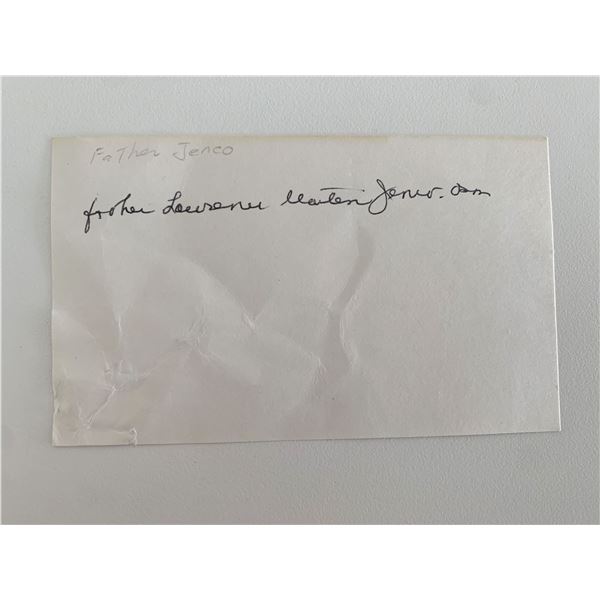 Father Jenco
father Lawrence Martin Jenco. osm